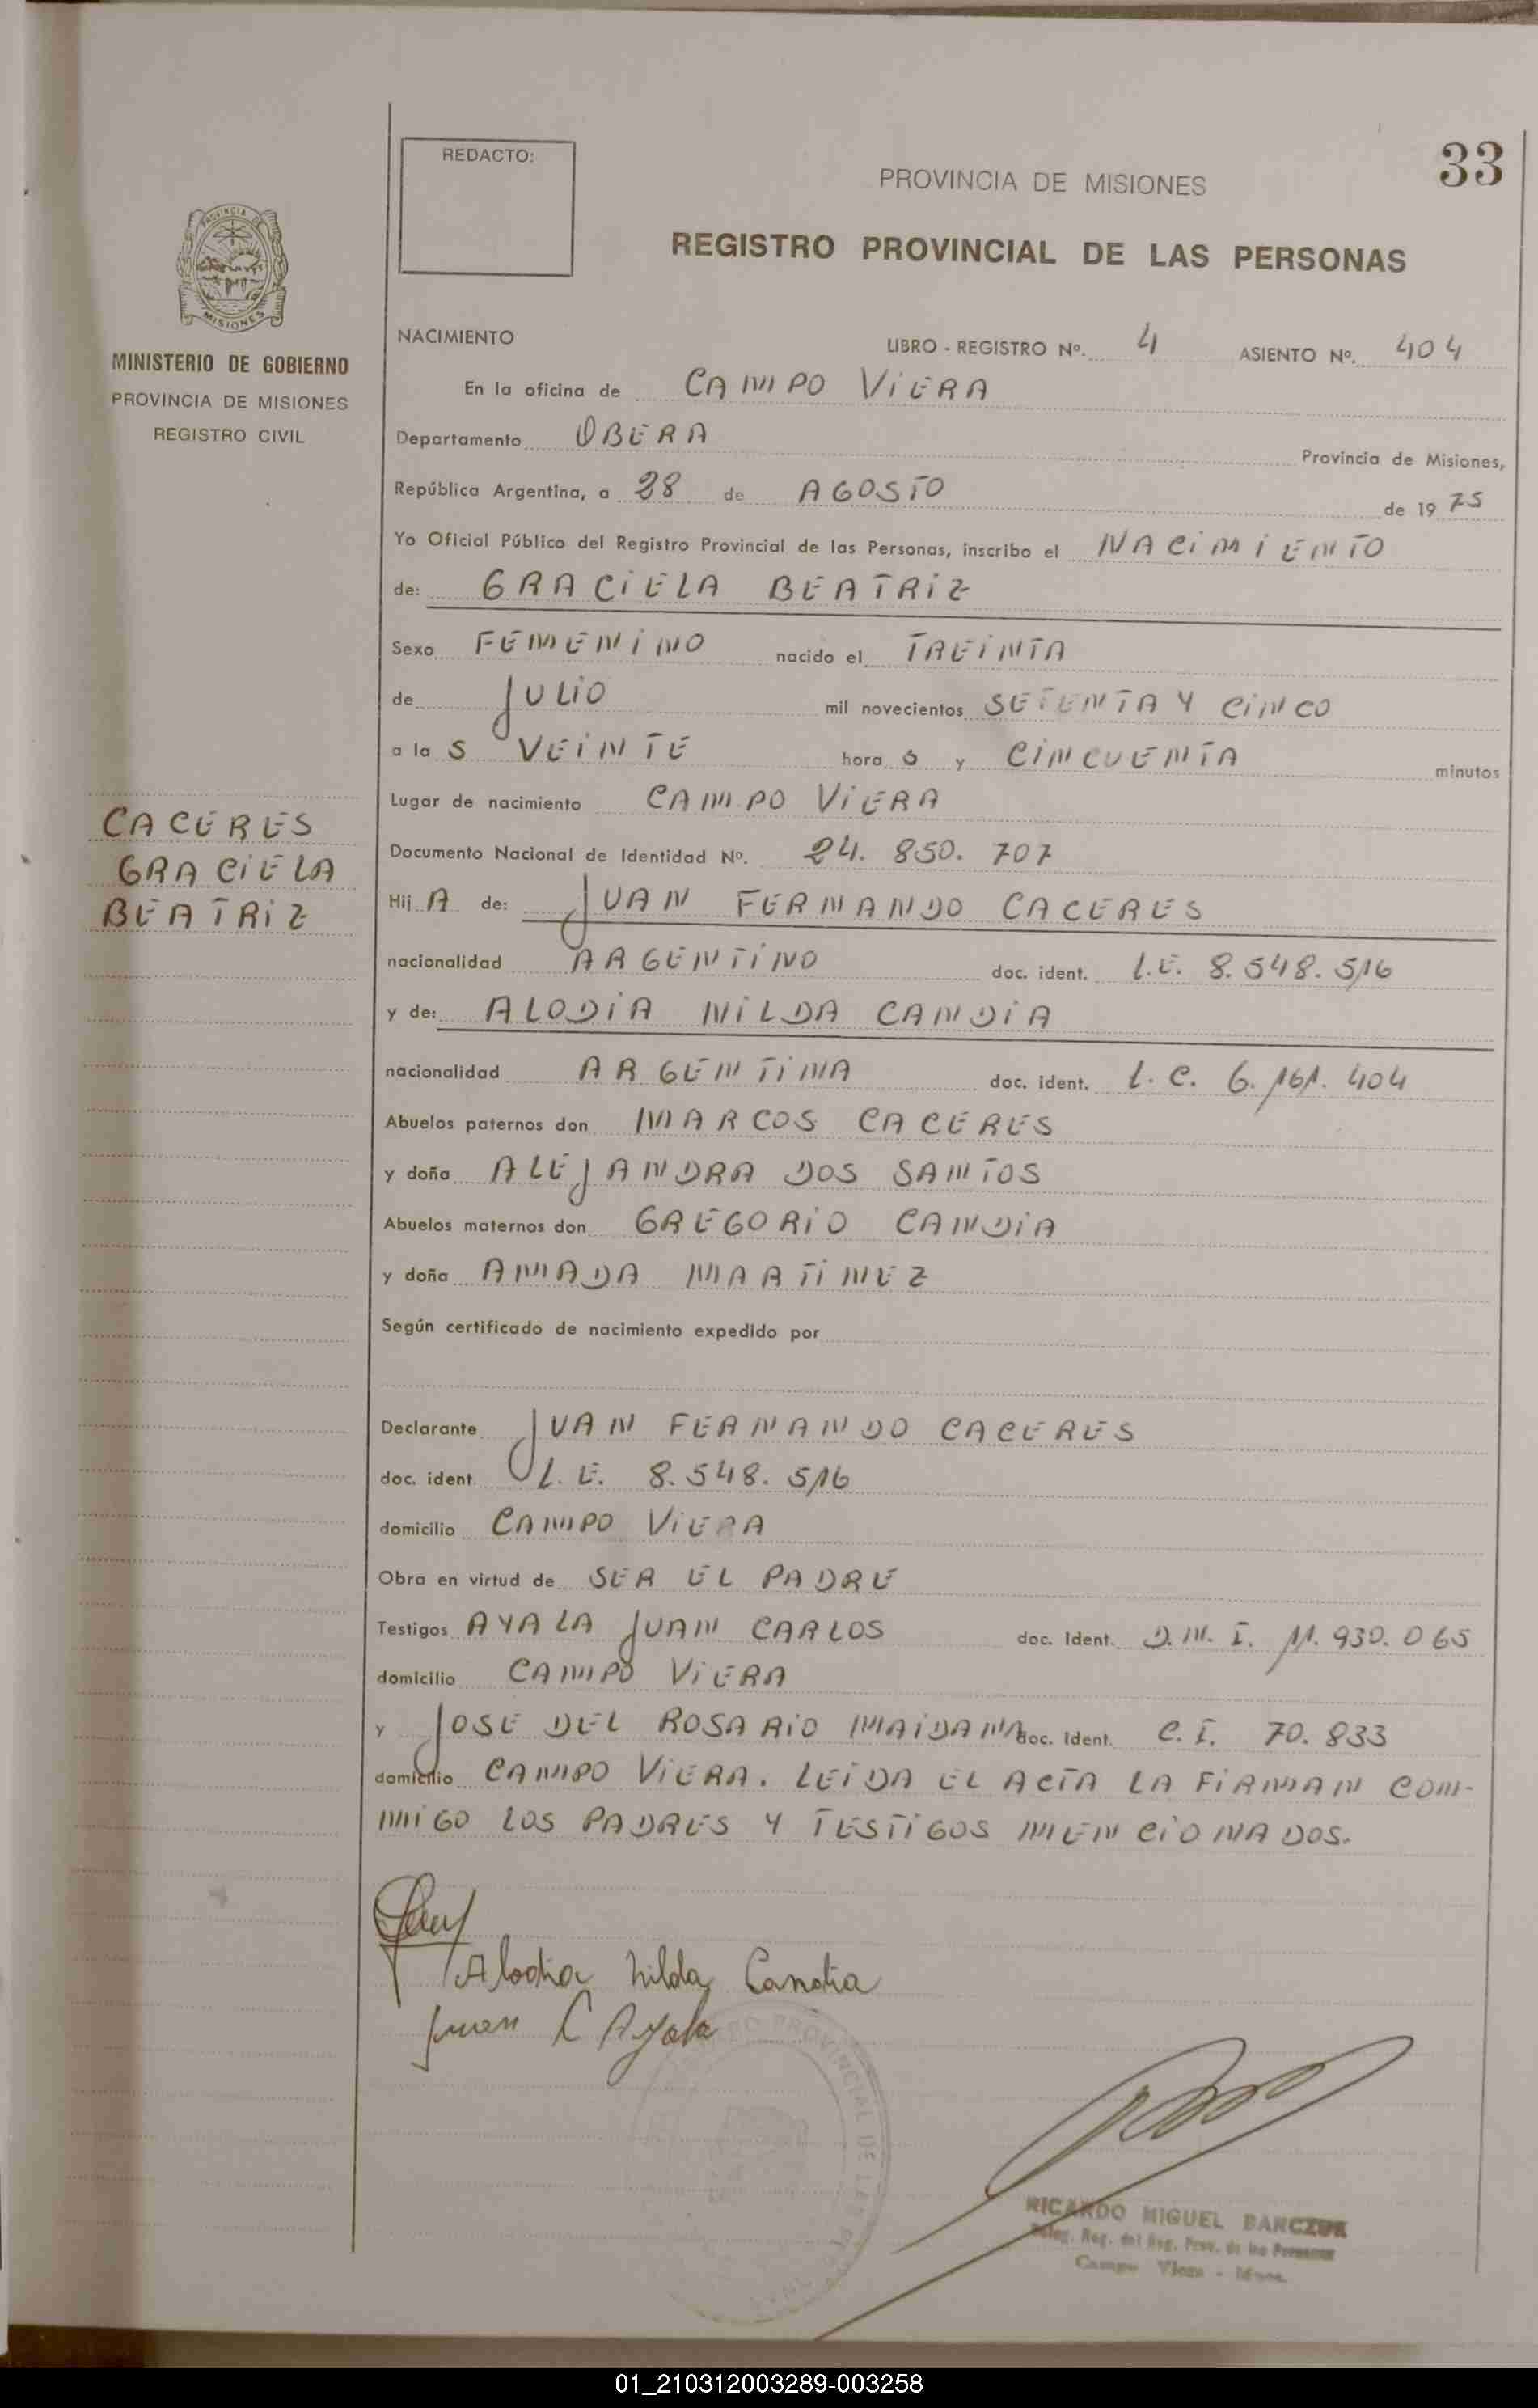 REDACTO:
PROVINCIA DE MISIONES
33
REGISTRO PROVINCIAL DE LAS PERSONAS
PROVINCIA DE
MISIONES
MINISTERIO DE GOBIERNO
PROVINCIA DE MISIONES
REGISTRO CIVIL
NACIMIENTO LIBRO - REGISTRO Nº. 4 ASIENTO Nº. 404
En la oficina de CAMPO VIERA
Departamento OBERA Provincia de Misiones,
República Argentina, a 28 de AGOSTO de 19 75
Yo Oficial Público del Registro Provincial de las Personas, inscribo el NACIMIENTO
de: GRACIELA BEATRIZ
Sexo FEMENINO nacido el TREINTA
de JULIO mil novecientos SETENTA Y CINCO
a la S VEINTE hora S y CINCUENTA minutos
Lugar de nacimiento CAMPO VIERA
CACERES
GRACIELA
BEATRIZ
Documento Nacional de Identidad Nº. 24. 850. 707
Hij A de: JUAN FERNANDO CACERES
nacionalidad ARGENTINO doc. ident. L.E. 8.548.516
y de: ALODIA NILDA CANDIA
nacionalidad ARGENTINA doc. ident. L.C. 6.161.404
Abuelos paternos don MARCOS CACERES
y doña ALEJANDRA DOS SANTOS
Abuelos maternos don GREGORIO CANDIA
y doña AMADA MARTINEZ
Según certificado de nacimiento expedido por
Declarante JUAN FERNANDO CACERES
doc. ident. L.E. 8.548.516
domicilio CAMPO VIERA
Obra en virtud de SER EL PADRE
Testigos AYALA JUAN CARLOS doc. Ident. D.N.I. 11.930.065
domicilio CAMPO VIERA
y JOSE DEL ROSARIO MAIDANA doc. Ident. C.I. 70.833
domicilio CAMPO VIERA. LEIDA EL ACTA LA FIRMAN CON-
MIGO LOS PADRES Y TESTIGOS MENCIONADOS.
Alodia nilda Candia
Juan C Ayala
PROVINCIAL DE LAS
RICARDO MIGUEL BARCZUK
Deleg. Reg. del Reg. Prov. de las Personas
Campo Viera - Mnes.
01_210312003289-003258